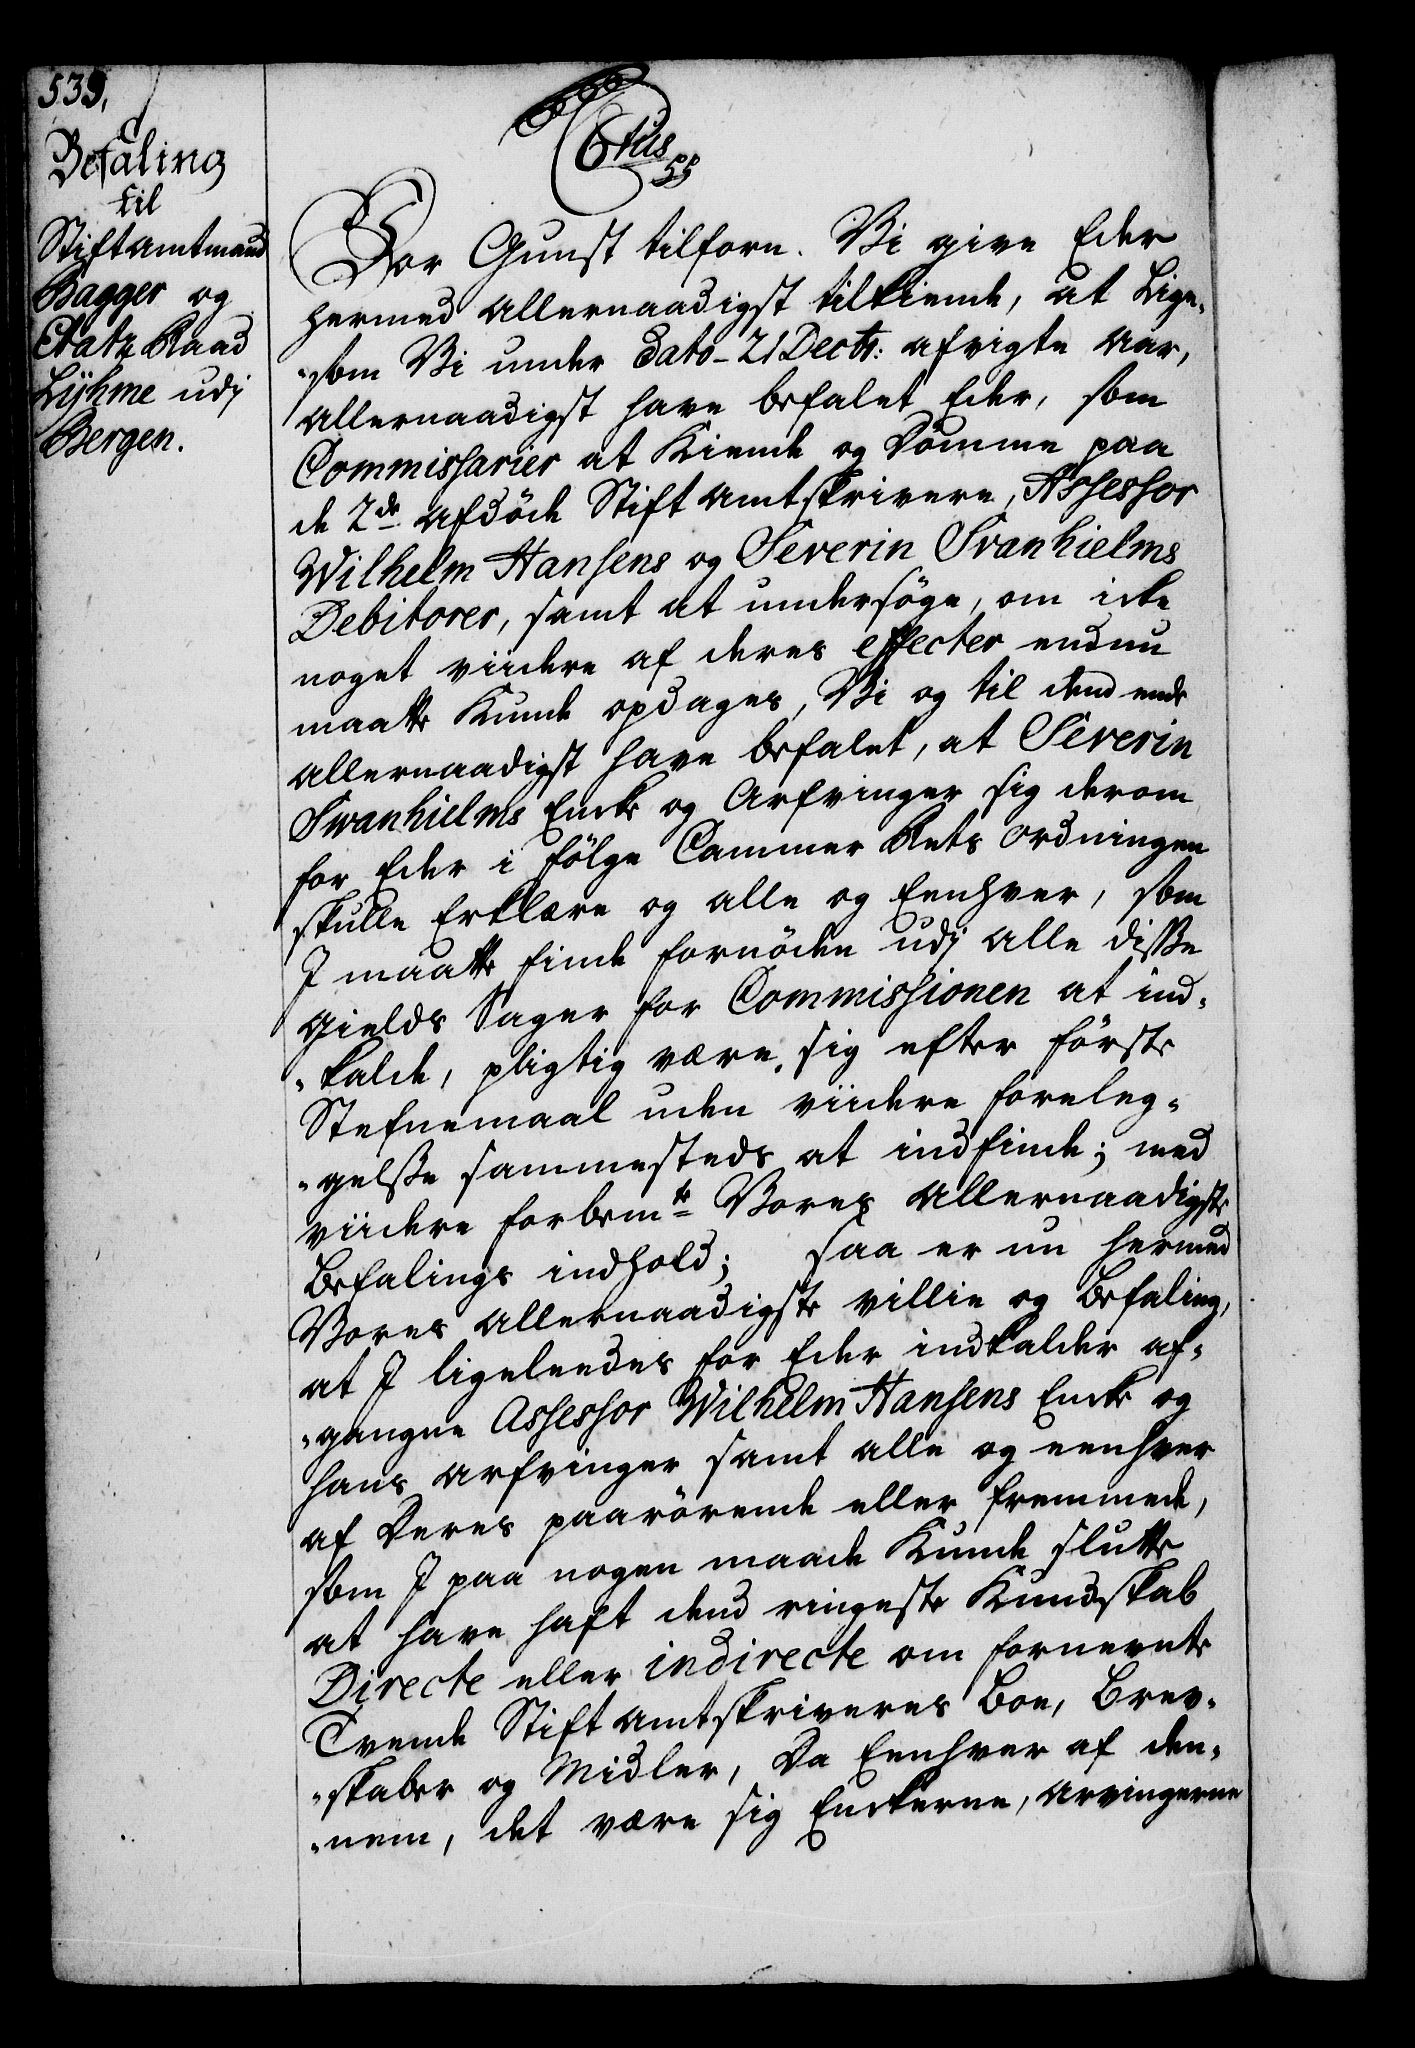 539.
Befaling
til
Stiftamtmand
Bagger og
Etatz Raad
Lÿhme udj
Bergen.
C6tus
Vor Gunst tilforn. Vi give Eder
hermed allernaadigst tilkiende, at Lige-
-som Vi under dato 21 Decbr: afvigte Aar,
allernaadigst have befalet Eder, som
Commissarier at Kiende og Dömme paa
de 2de afdöde Stiftamtskrivere, Assessor
Wilhelm Hansens og Severin Svanhielms
Debitorer, samt at undersöge, om icke
noget viidere af deres effecter endnu
maatte Kunde opdages, Vi og til dend ende
allernaadigst have befalet, at Severin
Swanhielms Encke og Arfvinger sig derom
for Eder i fölge Cammer Rets Ordningen
skulle Erklære og alle og Eenhver, som
I maatte finde fornöden udj alle disse
gields Sager for Commissionen at ind-
-kalde, pligtig være, sig efter förste
Stefnemaal uden viidere foreleg-
-gelsse sammesteds at indfinde; med
viidere forbemte Vores Allernaadigste
Befalings indhold; saa er nu hermed
Vores allernaadigste villie og befaling,
at I ligeleedes for Eder indkalder af-
-gangne Assessor Wilhelm Hansens Encke og
hans arfvinger samt alle og eenhver
af Deres paarörende eller fremmede,
som I paa nogen maade Kunde slutte
at have haft dend ringeste Kundskab
Directe eller indirecte om fornevnte
Tvende Stiftamtskriveres Boe, Brev-
-skaber og Midler, Da Eenhver af den-
-nem, det være sig Enckerne, arvingerne